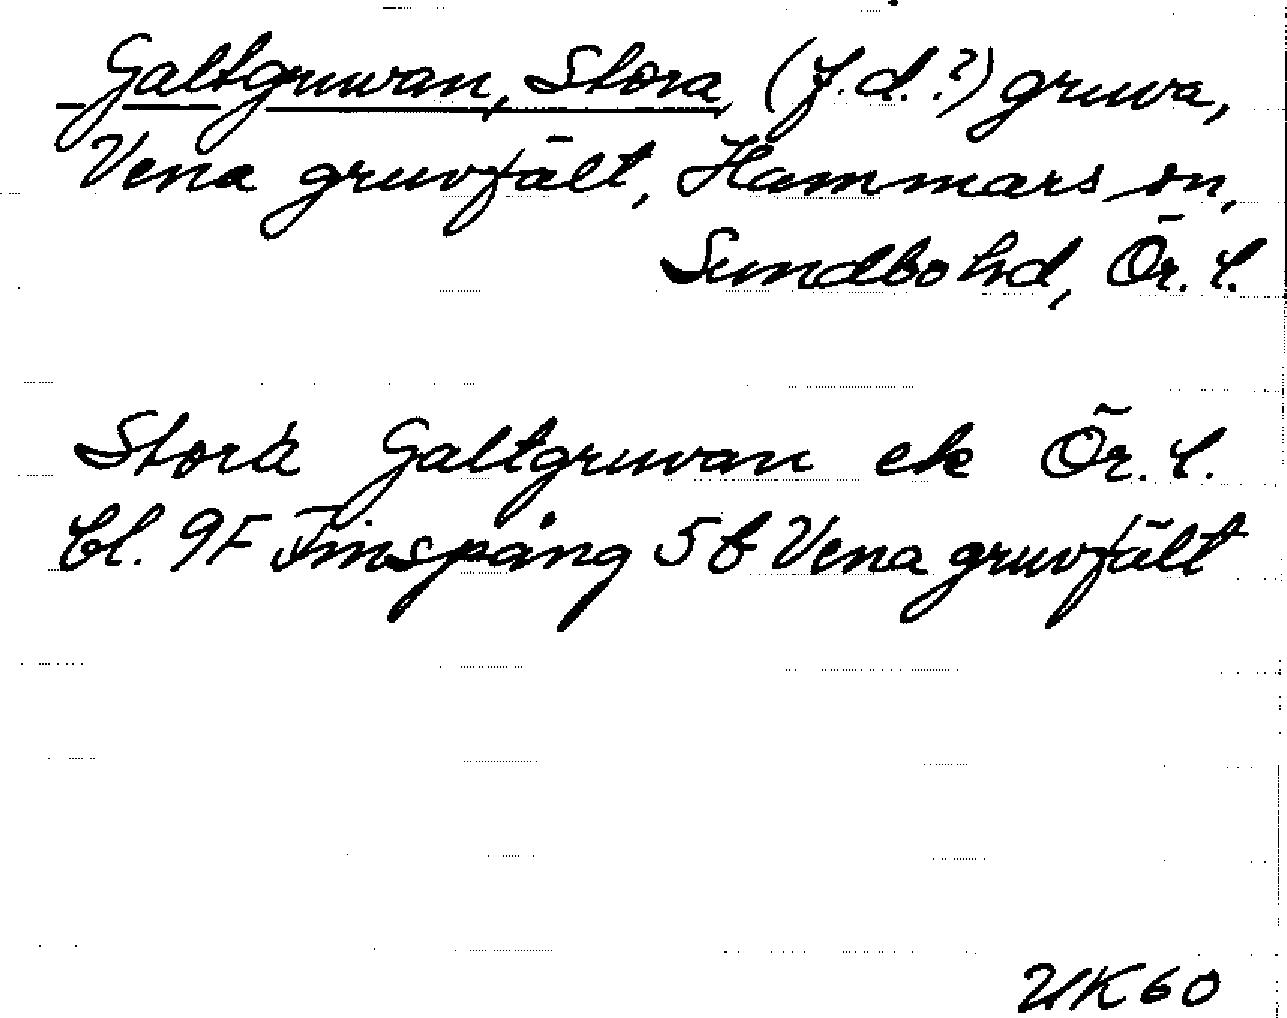 Galtgruvan, Stora (f.d.?) gruva,
Vena gruvfält, Hammars sn,
Sundbo hd, Ör. l.
Stora Galtgruvan ek Ör. l.
bl. 9F Finspång 5b Vena gruvfält
UK60